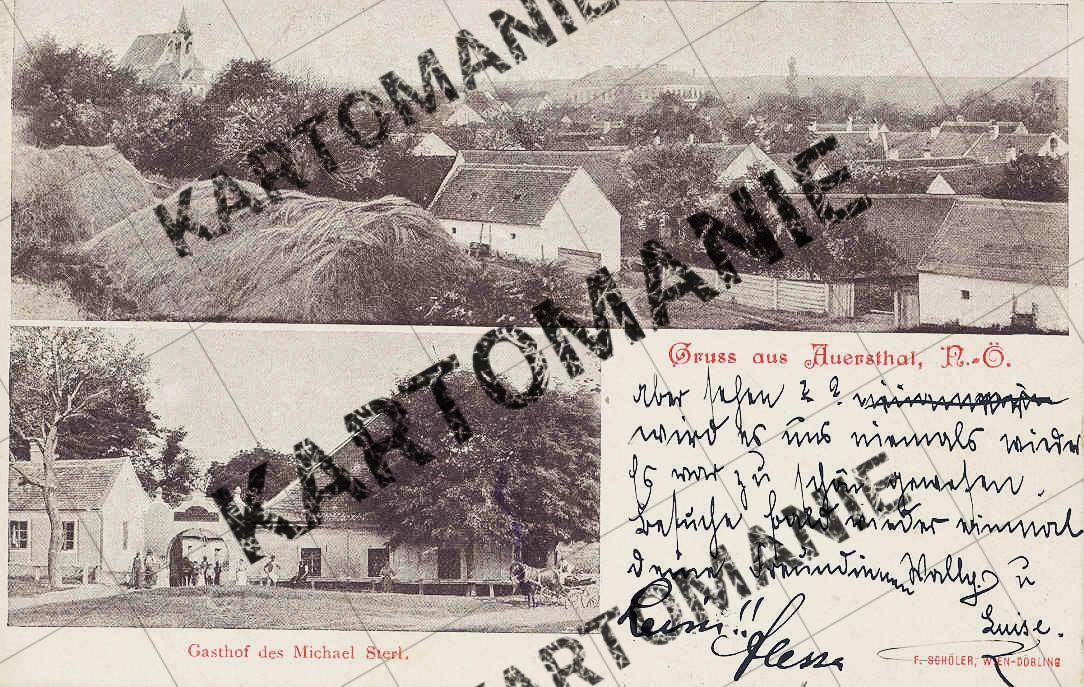 Gruss aus Auersthal, N.-Ö.
aber sehen ? ?
wird es uns niemals wieder
Es war zu schön gewesen.
Besuche bald wieder einmal
deine Freundinnen Wally u
Luise.
Gasthof des Michael Sterl.
F. SCHÖLER, WIEN-DÖBLING
KARTOMANIE
KARTOMANIE
KARTOMANIE
KARTOMANIE
KARTOMANIE